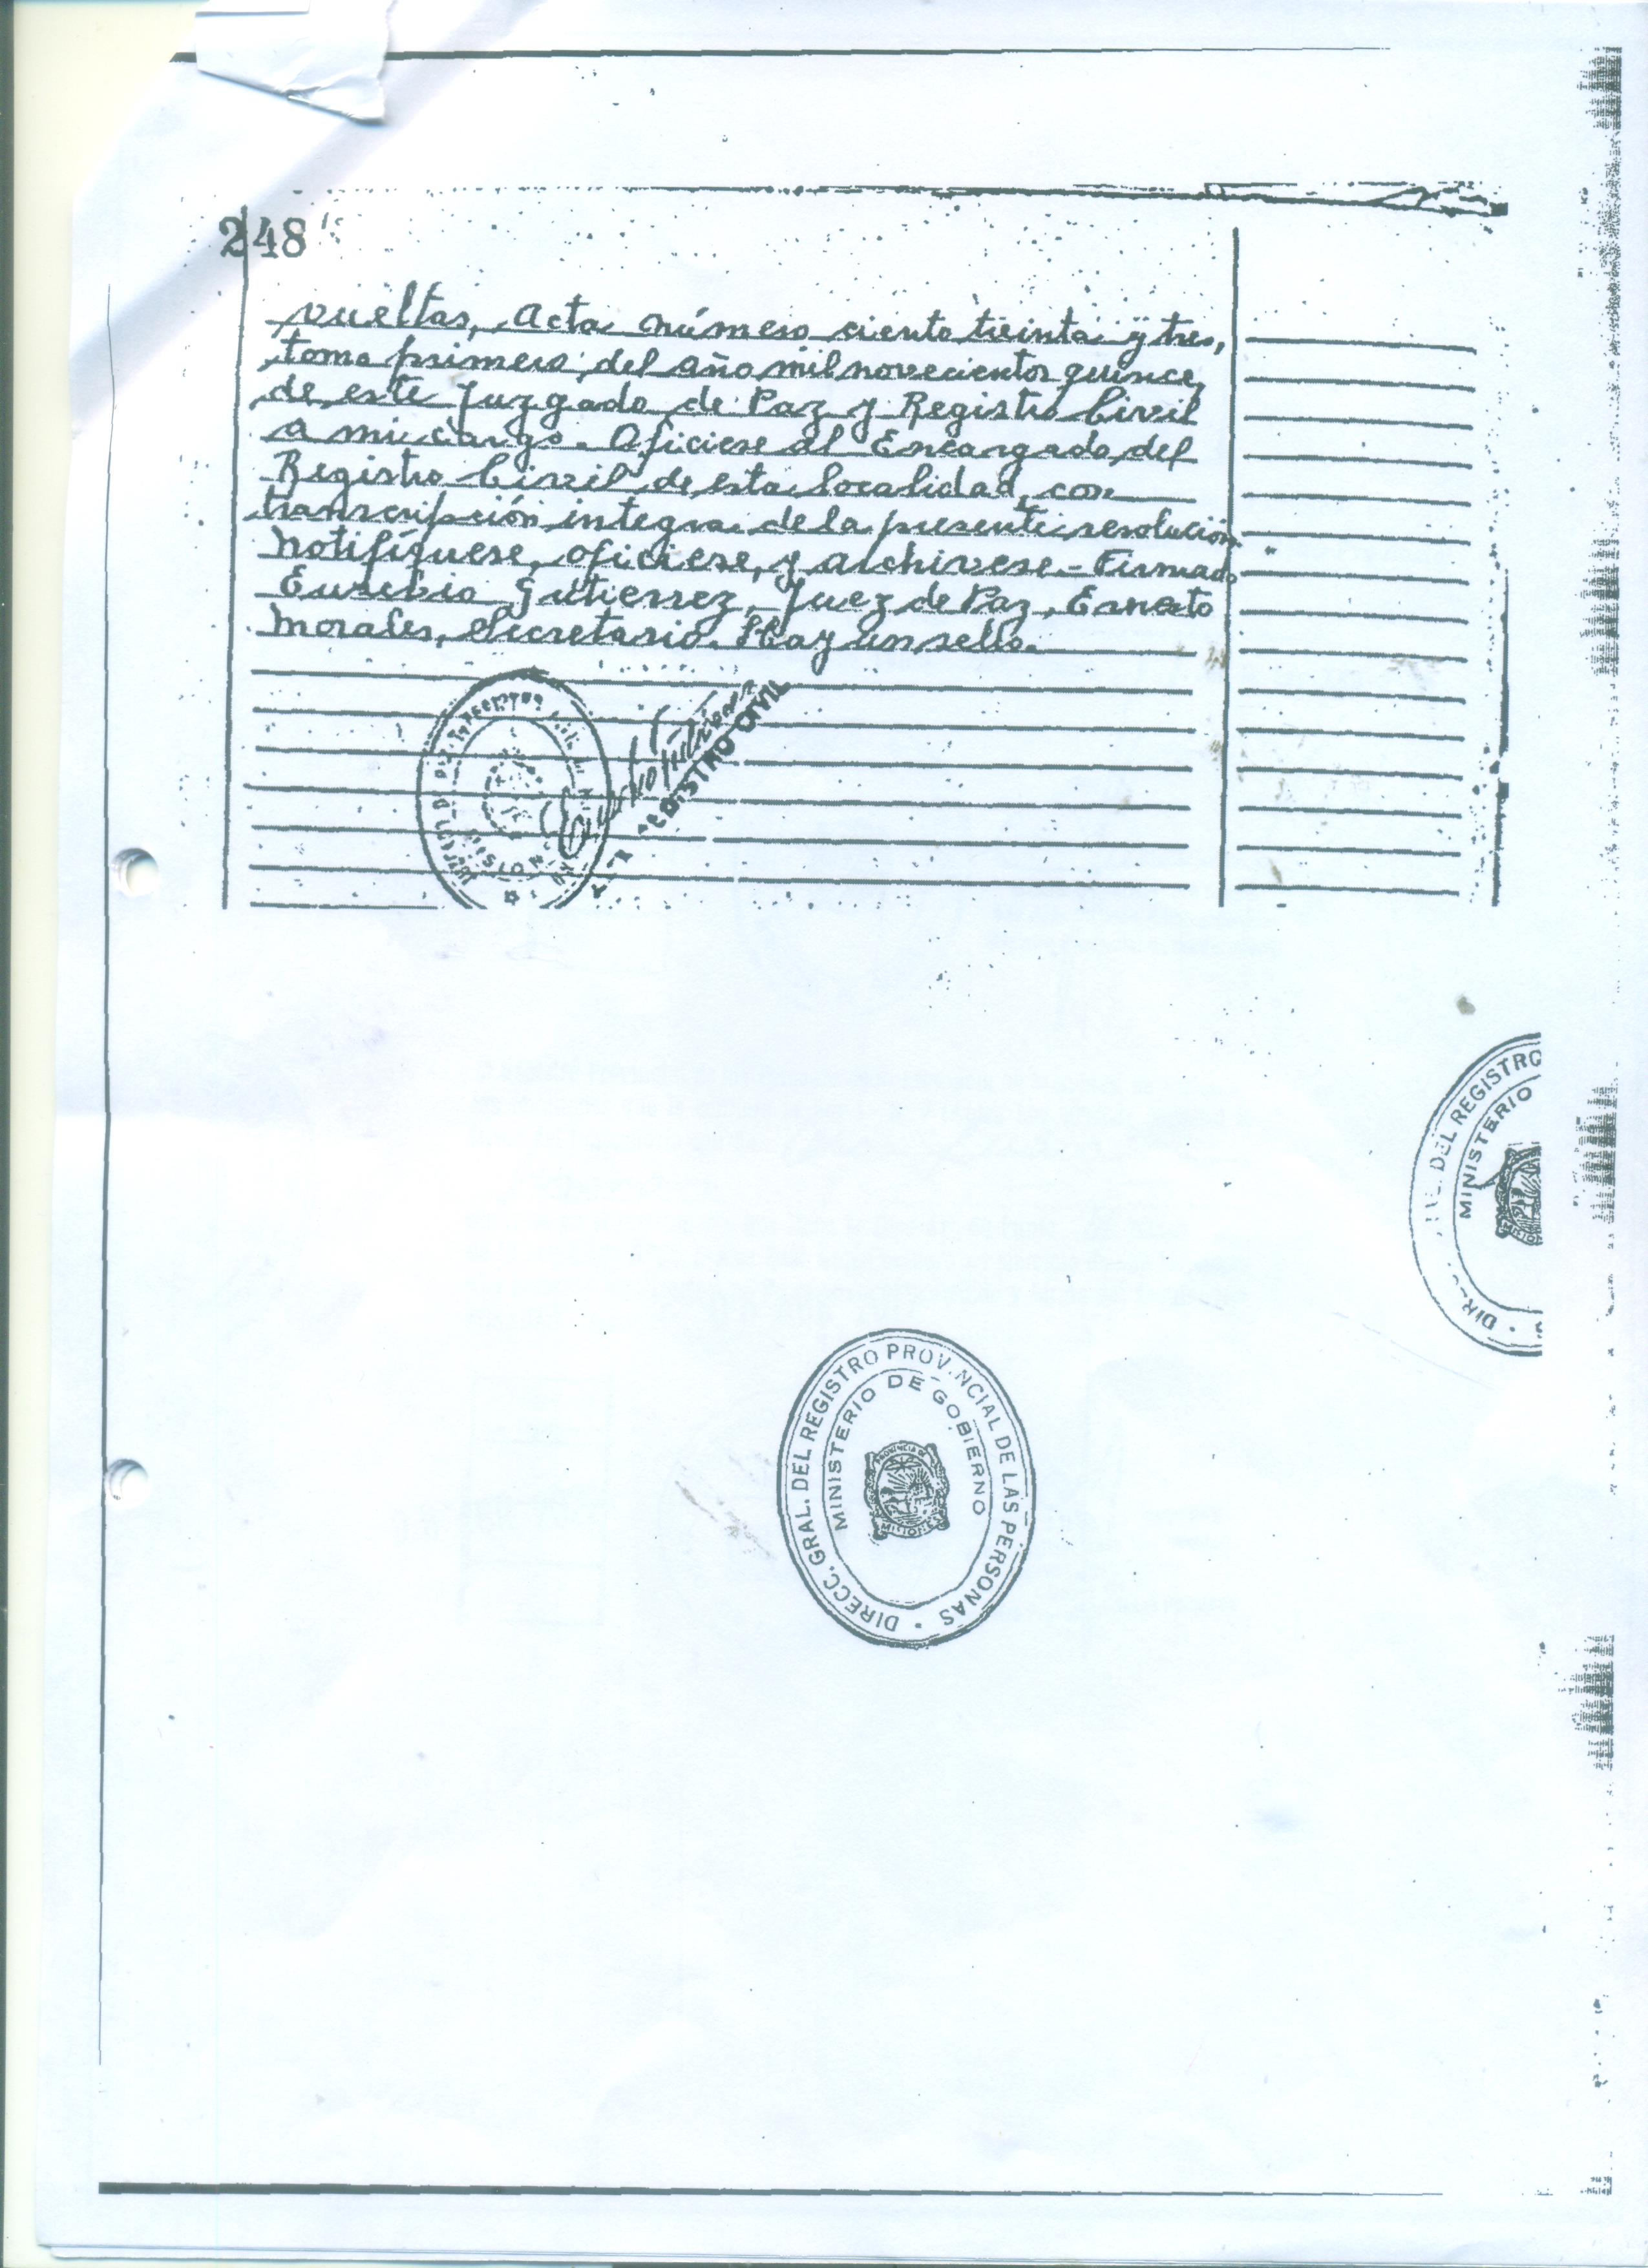 248
vueltas, Acta número ciento treinta y tres,
tomo primero del año mil novecientos quince,
de este Juzgado de Paz y Registro Civil
a mi cargo. Oficiese al Encargado del
Registro Civil de esta localidad, con
transcripción integra de la presente resolución
Notifíquese, oficiese, y archivese.- Firmado
Eusebio Gutierrez, Juez de Paz, Ernesto
Morales, Secretario. Hay un sello.
MISION
REGISTRO CIVIL
DEL REGISTRO
MINISTERIO
DIRECC. GRAL. DEL REGISTRO PROVINCIAL DE LAS PERSONAS
MINISTERIO DE GOBIERNO
PROVINCIA DE
MISIONES